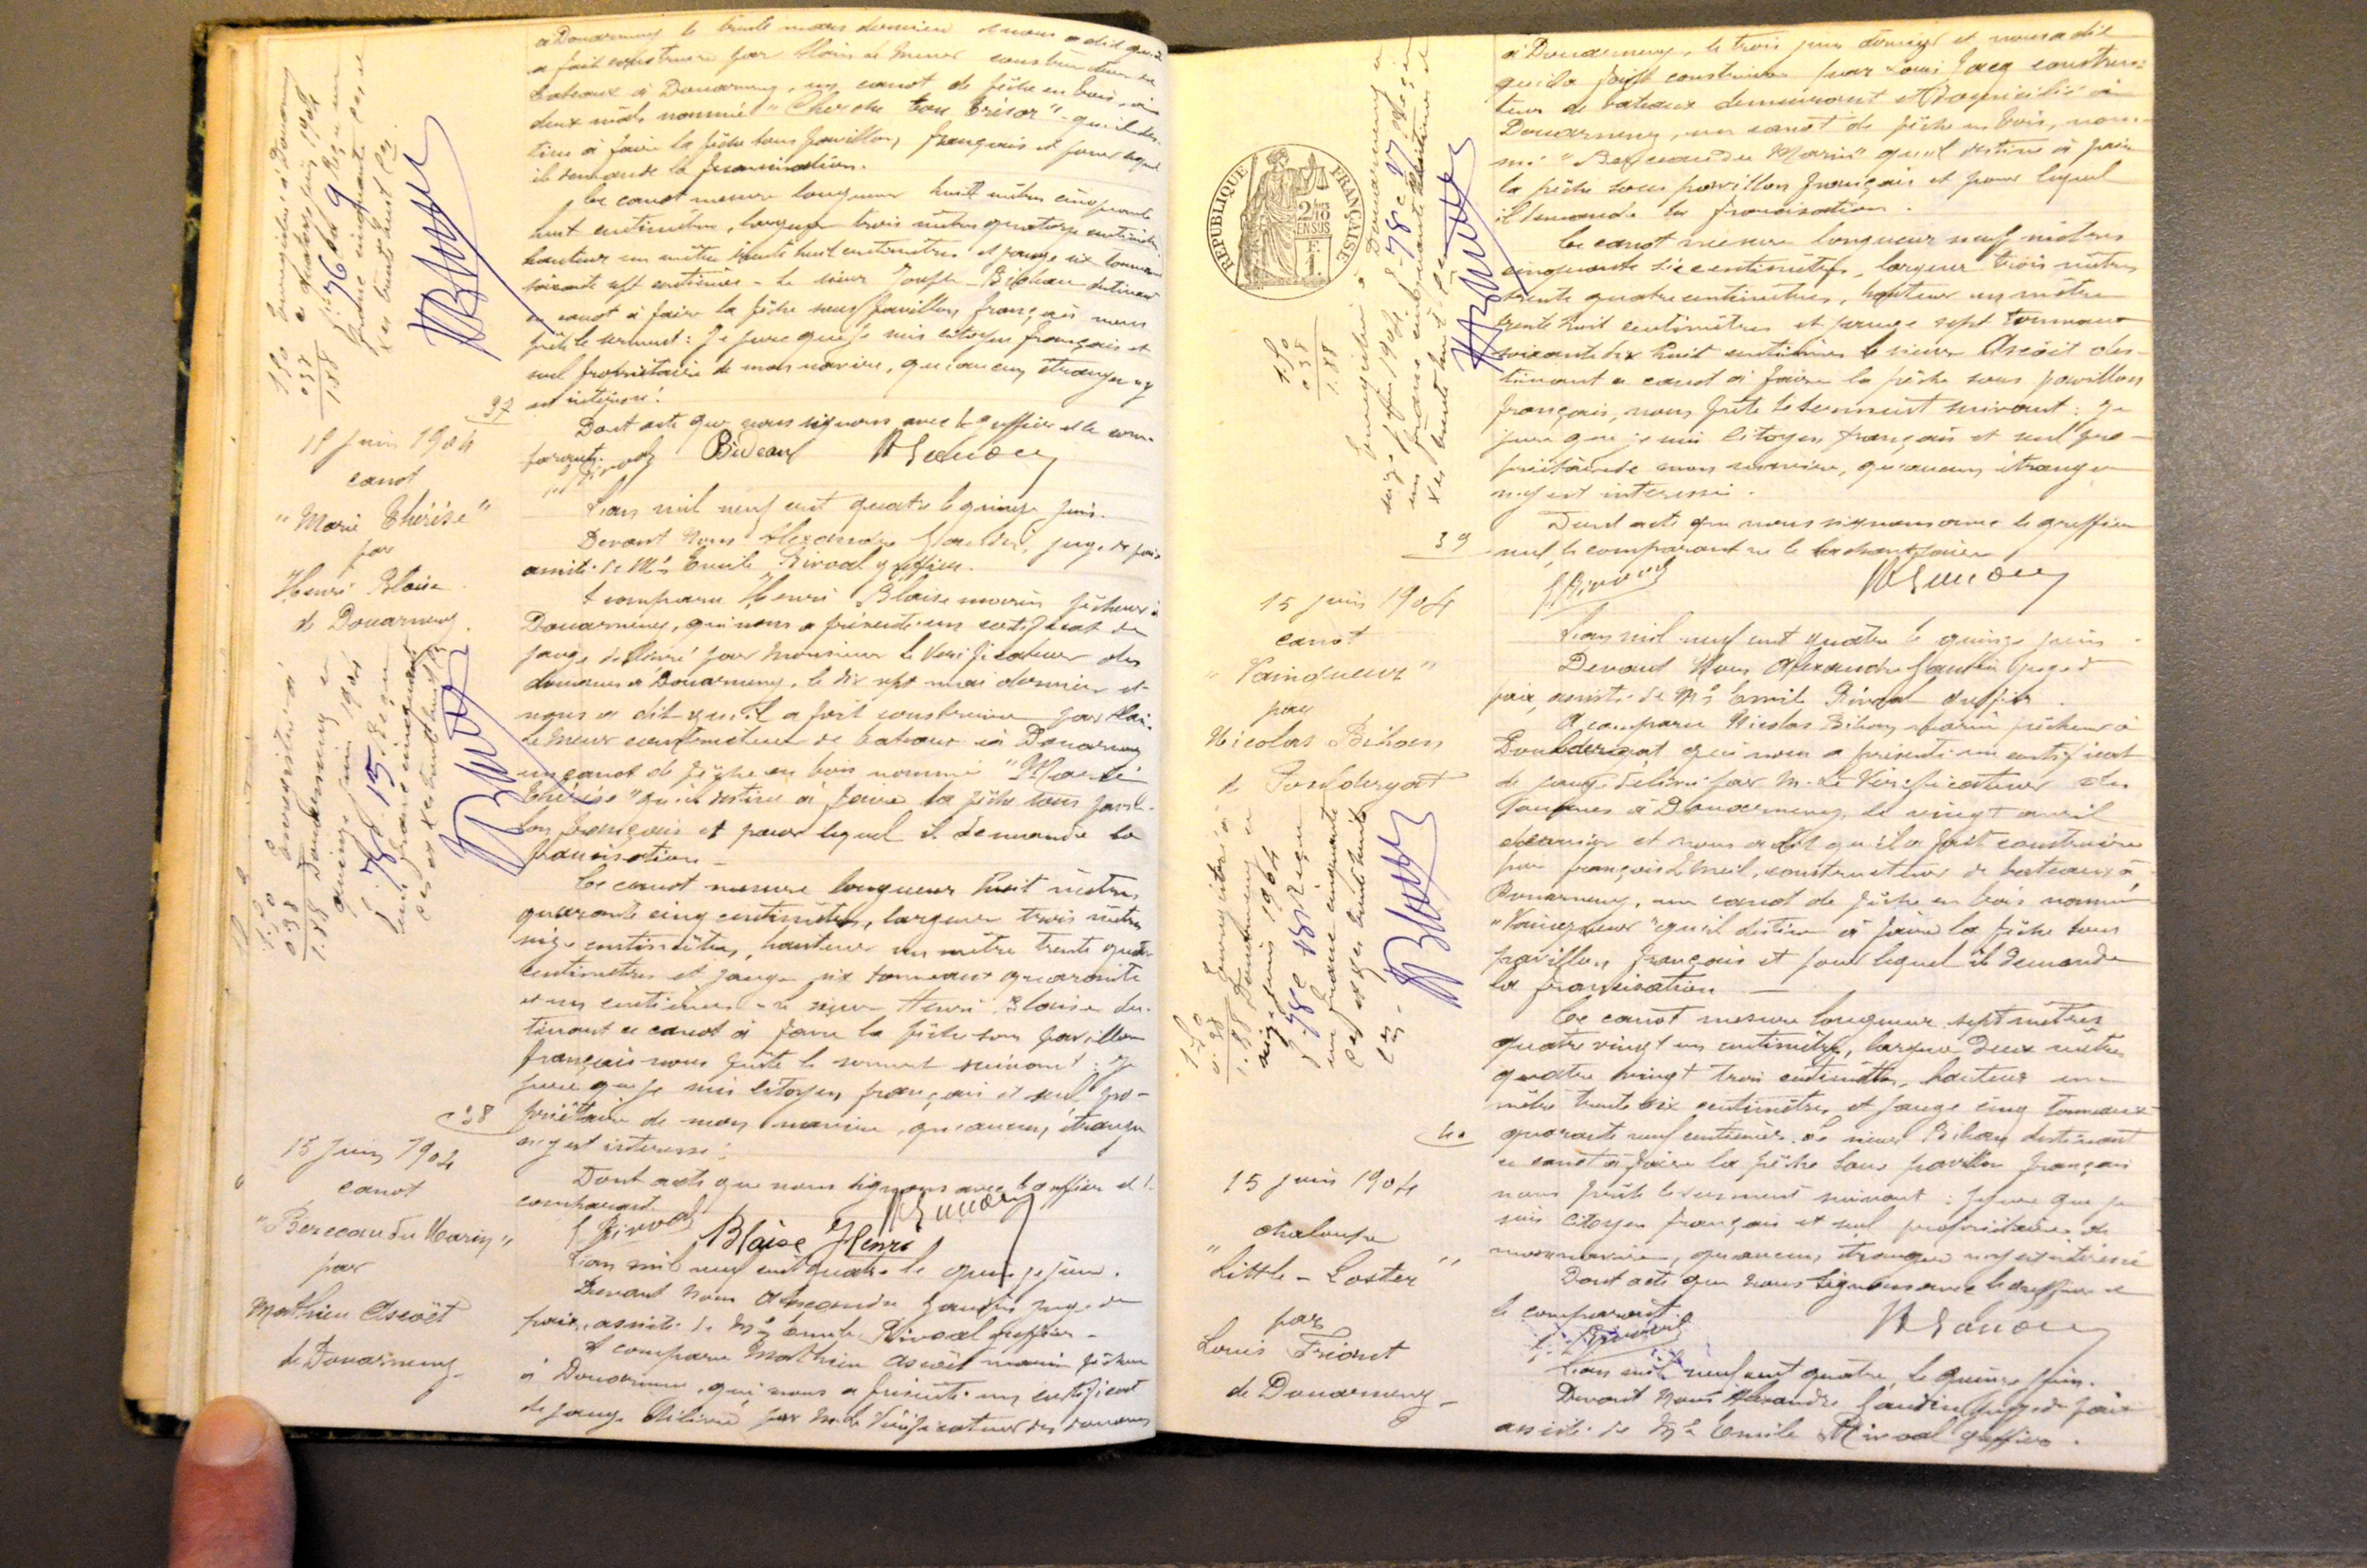 à Douarnenez le trente mars dernier et nous a dit qu'il
a fait construire par Alain Le Meur constructeur de
bateaux à Douarnenez, un canot de pêche en bois, à
deux mâts nommé "Cherche ton trésor" qu'il des-
tine à faire la pêche sous pavillon français et pour lequel
il demande la francisation.
Ce canot mesure longueur huit mètres cinquante
huit centimètres, largeur trois mètres quatorze centimètres
hauteur un mètre trente huit centimètres et jauge six tonneaux
soixante sept centièmes - Le sieur Joseph Bideau destinant
ce canot à faire la pêche sous pavillon français nous
prête le serment : Je jure que je suis citoyen français et
seul propriétaire de mon navire, qu'aucun étranger n'y
est intéressé.
Dont acte que nous signons avec le greffier et le com-
parant.
Bideau
Enregistré à Douarnenez
le quatorze juin 1904
f° 76 c 9 Reçu un
franc cinquante
1.50
0.38
1.88
37
15 juin 1904
canot
"Marie Thérèse"
par
Henri Blaise
de Douarnenez.
L'an mil neuf cent quatre le quinze juin.
Devant Nous Alexandre Gaudin, juge de paix
assisté de Me Emile Rivoal greffier.
A comparu Henri Blaise marin pêcheur à
Douarnenez, qui nous a présenté un certificat de
jauge délivré par Monsieur le Vérificateur des
douanes à Douarnenez, le dix sept mai dernier et
nous a dit qu'il a fait construire par Alain
Le Meur constructeur de bateaux à Douarnenez
un canot de pêche en bois nommé "Marie
Thérèse" qu'il destine à faire la pêche sous pavil-
lon français et pour lequel il demande la
francisation -
Ce canot mesure longueur huit mètres
quarante cinq centimètres, largeur trois mètres
seize centimètres, hauteur un mètre trente quatre
centimètres et jauge six tonneaux quarante
et un centièmes - Le sieur Henri Blaise des-
tinant ce canot à faire la pêche sous pavillon
français nous prête le serment suivant : Je
jure que je suis citoyen français et seul pro-
priétaire de mon navire, qu'aucun étranger
n'y est intéressé.
Dont acte que nous signons avec le greffier et le
comparant.
E Rivoal Blaise Henri A Gaudin
Enregistré à
Douarnenez le
quinze juin 1904
f° 78 c 15 Reçu
un franc cinquante
1.50
0.38
1.88
38
15 Juin 1904
canot
"Berceau du Marin"
par
Mathieu Ascoët
de Douarnenez -
L'an mil neuf cent quatre le quinze juin.
Devant Nous Alexandre Gaudin juge de
paix, assisté de Me Emile Rivoal greffier -
A comparu Mathieu Ascoët marin pêcheur
à Douarnenez, qui nous a présenté un certificat
de jauge délivré par M. le Vérificateur des douanes
à Douarnenez, le trois juin dernier et nous a dit
qu'il a fait construire par Louis Jacq construc-
teur de bateaux demeurant et domicilié à
Douarnenez, un canot de pêche en bois, nom-
mé "Berceau du Marin" qu'il destine à faire
la pêche sous pavillon français et pour lequel
il demande la francisation.
Ce canot mesure longueur neuf mètres
cinquante six centimètres, largeur trois mètres
trente quatre centimètres, hauteur un mètre
trente huit centimètres et jauge sept tonneaux
soixante dix huit centièmes le sieur Ascoët des-
tinant ce canot à faire la pêche sous pavillon
français, nous prête le serment suivant : Je
jure que je suis citoyen français et seul pro-
priétaire de mon navire, qu'aucun étranger
n'y est intéressé.
Dont acte que nous signons avec le greffier
seul, le comparant ne le sachant faire
E Rivoal A Gaudin
RÉPUBLIQUE FRANÇAISE
Enregistré à Douarnenez le
seize juin 1904 f° 78 c 17 Reçu
un franc cinquante
1.50
0.38
1.88
39
15 juin 1904
canot
"Vainqueur"
par
Nicolas Bihan
de Pouldergat
L'an mil neuf cent quatre le quinze juin
Devant Nous Alexandre Gaudin juge de
paix, assisté de Me Emile Rivoal greffier.
A comparu Nicolas Bihan marin pêcheur à
Pouldergat qui nous a présenté un certificat
de jauge délivré par M. Le Vérificateur des
Douanes à Douarnenez, le vingt avril
dernier et nous a dit qu'il a fait construire
par François, constructeur de bateaux à
Douarnenez, un canot de pêche en bois nommé
"Vainqueur" qu'il destine à faire la pêche sous
pavillon français et pour lequel il demande
la francisation
Ce canot mesure longueur sept mètres
quatre vingt un centimètres, largeur deux mètres
quatre vingt trois centimètres, hauteur un
mètre trente six centimètres et jauge cinq tonneaux
quarante neuf centièmes. Le sieur Bihan destinant
ce canot à faire la pêche sous pavillon français
nous prête le serment suivant : Je jure que je
suis citoyen français et seul propriétaire de
mon navire, qu'aucun étranger n'y est intéressé
Dont acte que nous signons avec le greffier et
le comparant.
E. Rivoal A Gaudin
Enregistré à
Douarnenez le
seize juin 1904
f° 78 c 18 Reçu
un franc cinquante
1.50
0.38
1.88
40
15 juin 1904
chaloupe
"Little-Loster"
par
Louis Friant
de Douarnenez -
L'an mil neuf cent quatre, le quinze juin.
Devant Nous Alexandre Gaudin juge de paix
assisté de Me Emile Rivoal greffier.